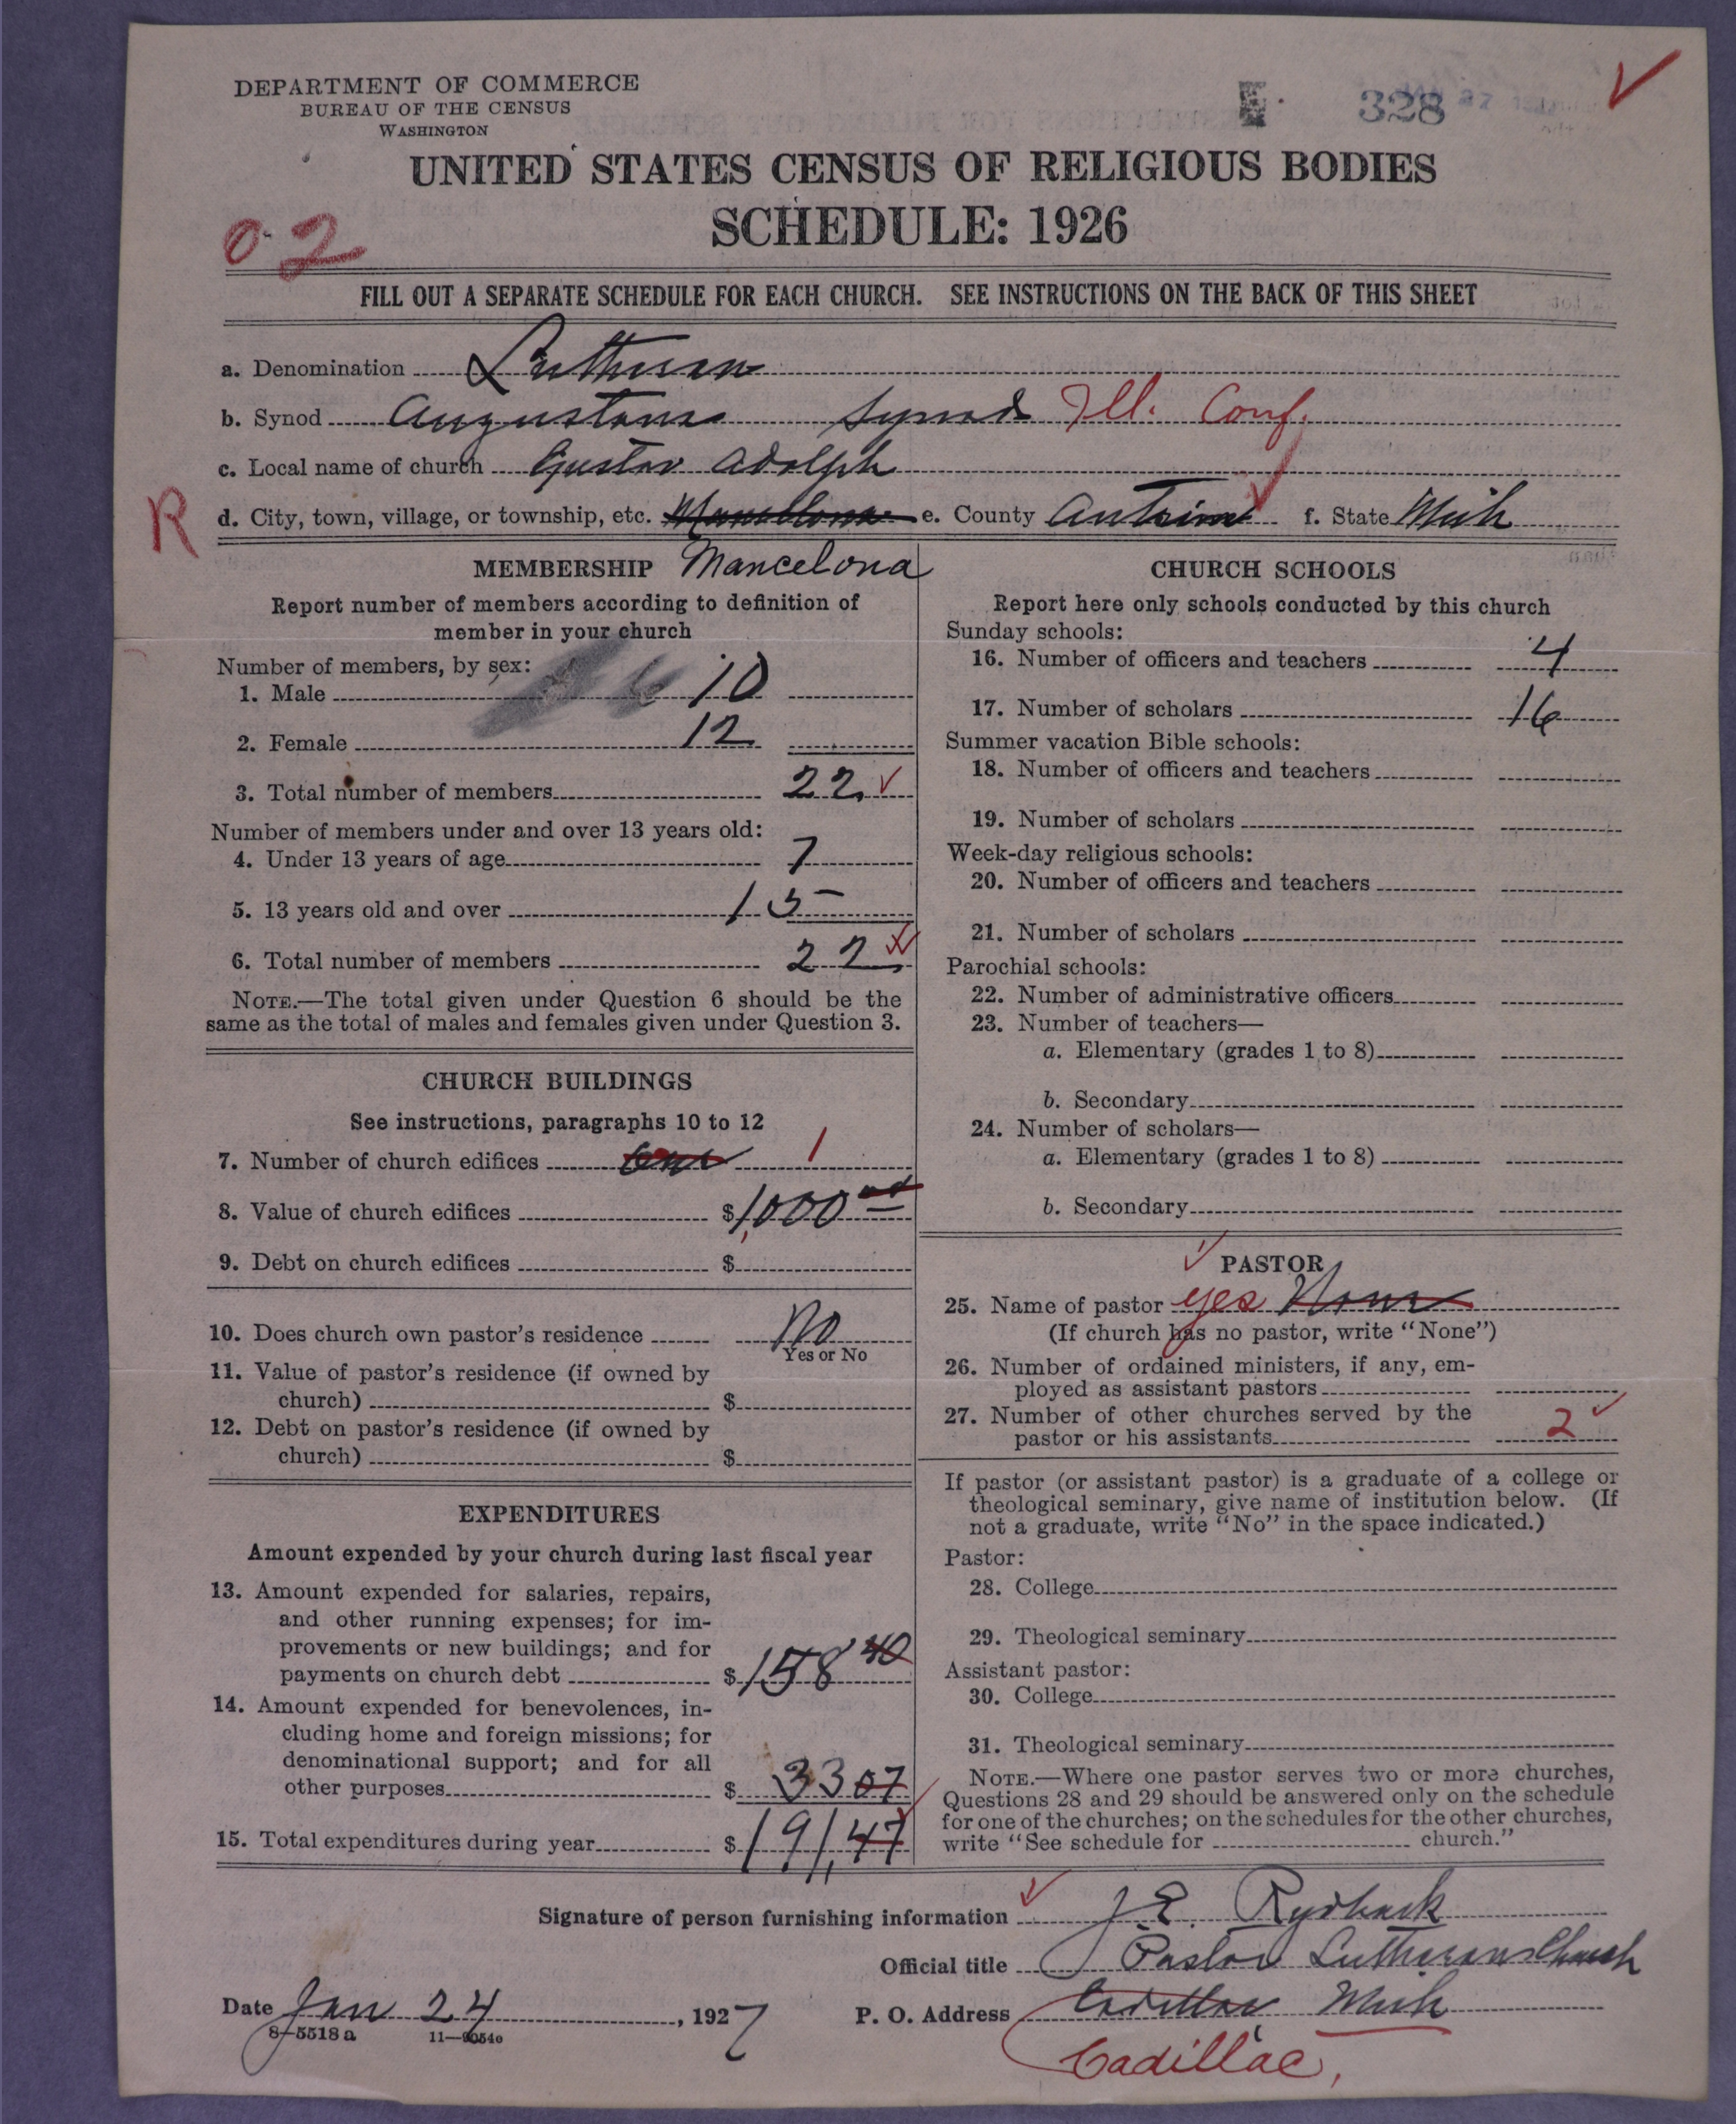 DEPARTMENT OF COMMERCE
BUREAU OF THE CENSUS
WASHINGTON
328
UNITED STATES CENSUS OF RELIGIOUS BODIES
SCHEDULE: 1926
02
FILL OUT A SEPARATE SCHEDULE FOR EACH CHURCH. SEE INSTRUCTIONS ON THE BACK OF THIS SHEET
a. Denomination Lutheran
b. Synod Augustana Synod Ill. Conf.
c. Local name of church Gustav Adolph
R
d. City, town, village, or township, etc. Mancelona e. County Antrim f. State Mich
MEMBERSHIP Mancelona
Report number of members according to definition of
member in your church
Number of members, by sex:
1. Male 10
2. Female 12
3. Total number of members 22
Number of members under and over 13 years old:
4. Under 13 years of age 7
5. 13 years old and over 15
6. Total number of members 22
NOTE.—The total given under Question 6 should be the
same as the total of males and females given under Question 3.
CHURCH BUILDINGS
See instructions, paragraphs 10 to 12
7. Number of church edifices One 1
8. Value of church edifices $1,000
9. Debt on church edifices $
10. Does church own pastor's residence No
Yes or No
11. Value of pastor's residence (if owned by
church) $
12. Debt on pastor's residence (if owned by
church) $
EXPENDITURES
Amount expended by your church during last fiscal year
13. Amount expended for salaries, repairs,
and other running expenses; for im-
provements or new buildings; and for
payments on church debt $158 40
14. Amount expended for benevolences, in-
cluding home and foreign missions; for
denominational support; and for all
other purposes $ 33 07
15. Total expenditures during year $191,47
CHURCH SCHOOLS
Report here only schools conducted by this church
Sunday schools:
16. Number of officers and teachers 4
17. Number of scholars 16
Summer vacation Bible schools:
18. Number of officers and teachers
19. Number of scholars
Week-day religious schools:
20. Number of officers and teachers
21. Number of scholars
Parochial schools:
22. Number of administrative officers
23. Number of teachers—
a. Elementary (grades 1 to 8)
b. Secondary
24. Number of scholars—
a. Elementary (grades 1 to 8)
b. Secondary
PASTOR
25. Name of pastor yes None
(If church has no pastor, write "None")
26. Number of ordained ministers, if any, em-
ployed as assistant pastors
27. Number of other churches served by the
pastor or his assistants 2
If pastor (or assistant pastor) is a graduate of a college or
theological seminary, give name of institution below. (If
not a graduate, write "No" in the space indicated.)
Pastor:
28. College
29. Theological seminary
Assistant pastor:
30. College
31. Theological seminary
NOTE.—Where one pastor serves two or more churches,
Questions 28 and 29 should be answered only on the schedule
for one of the churches; on the schedules for the other churches,
write "See schedule for church."
Signature of person furnishing information J. E. Rydback
Official title Pastor Lutheran Church
Date Jan 24, 1927 P. O. Address Cadillac Mich
8—5518 a 11—9054c
Cadillac,